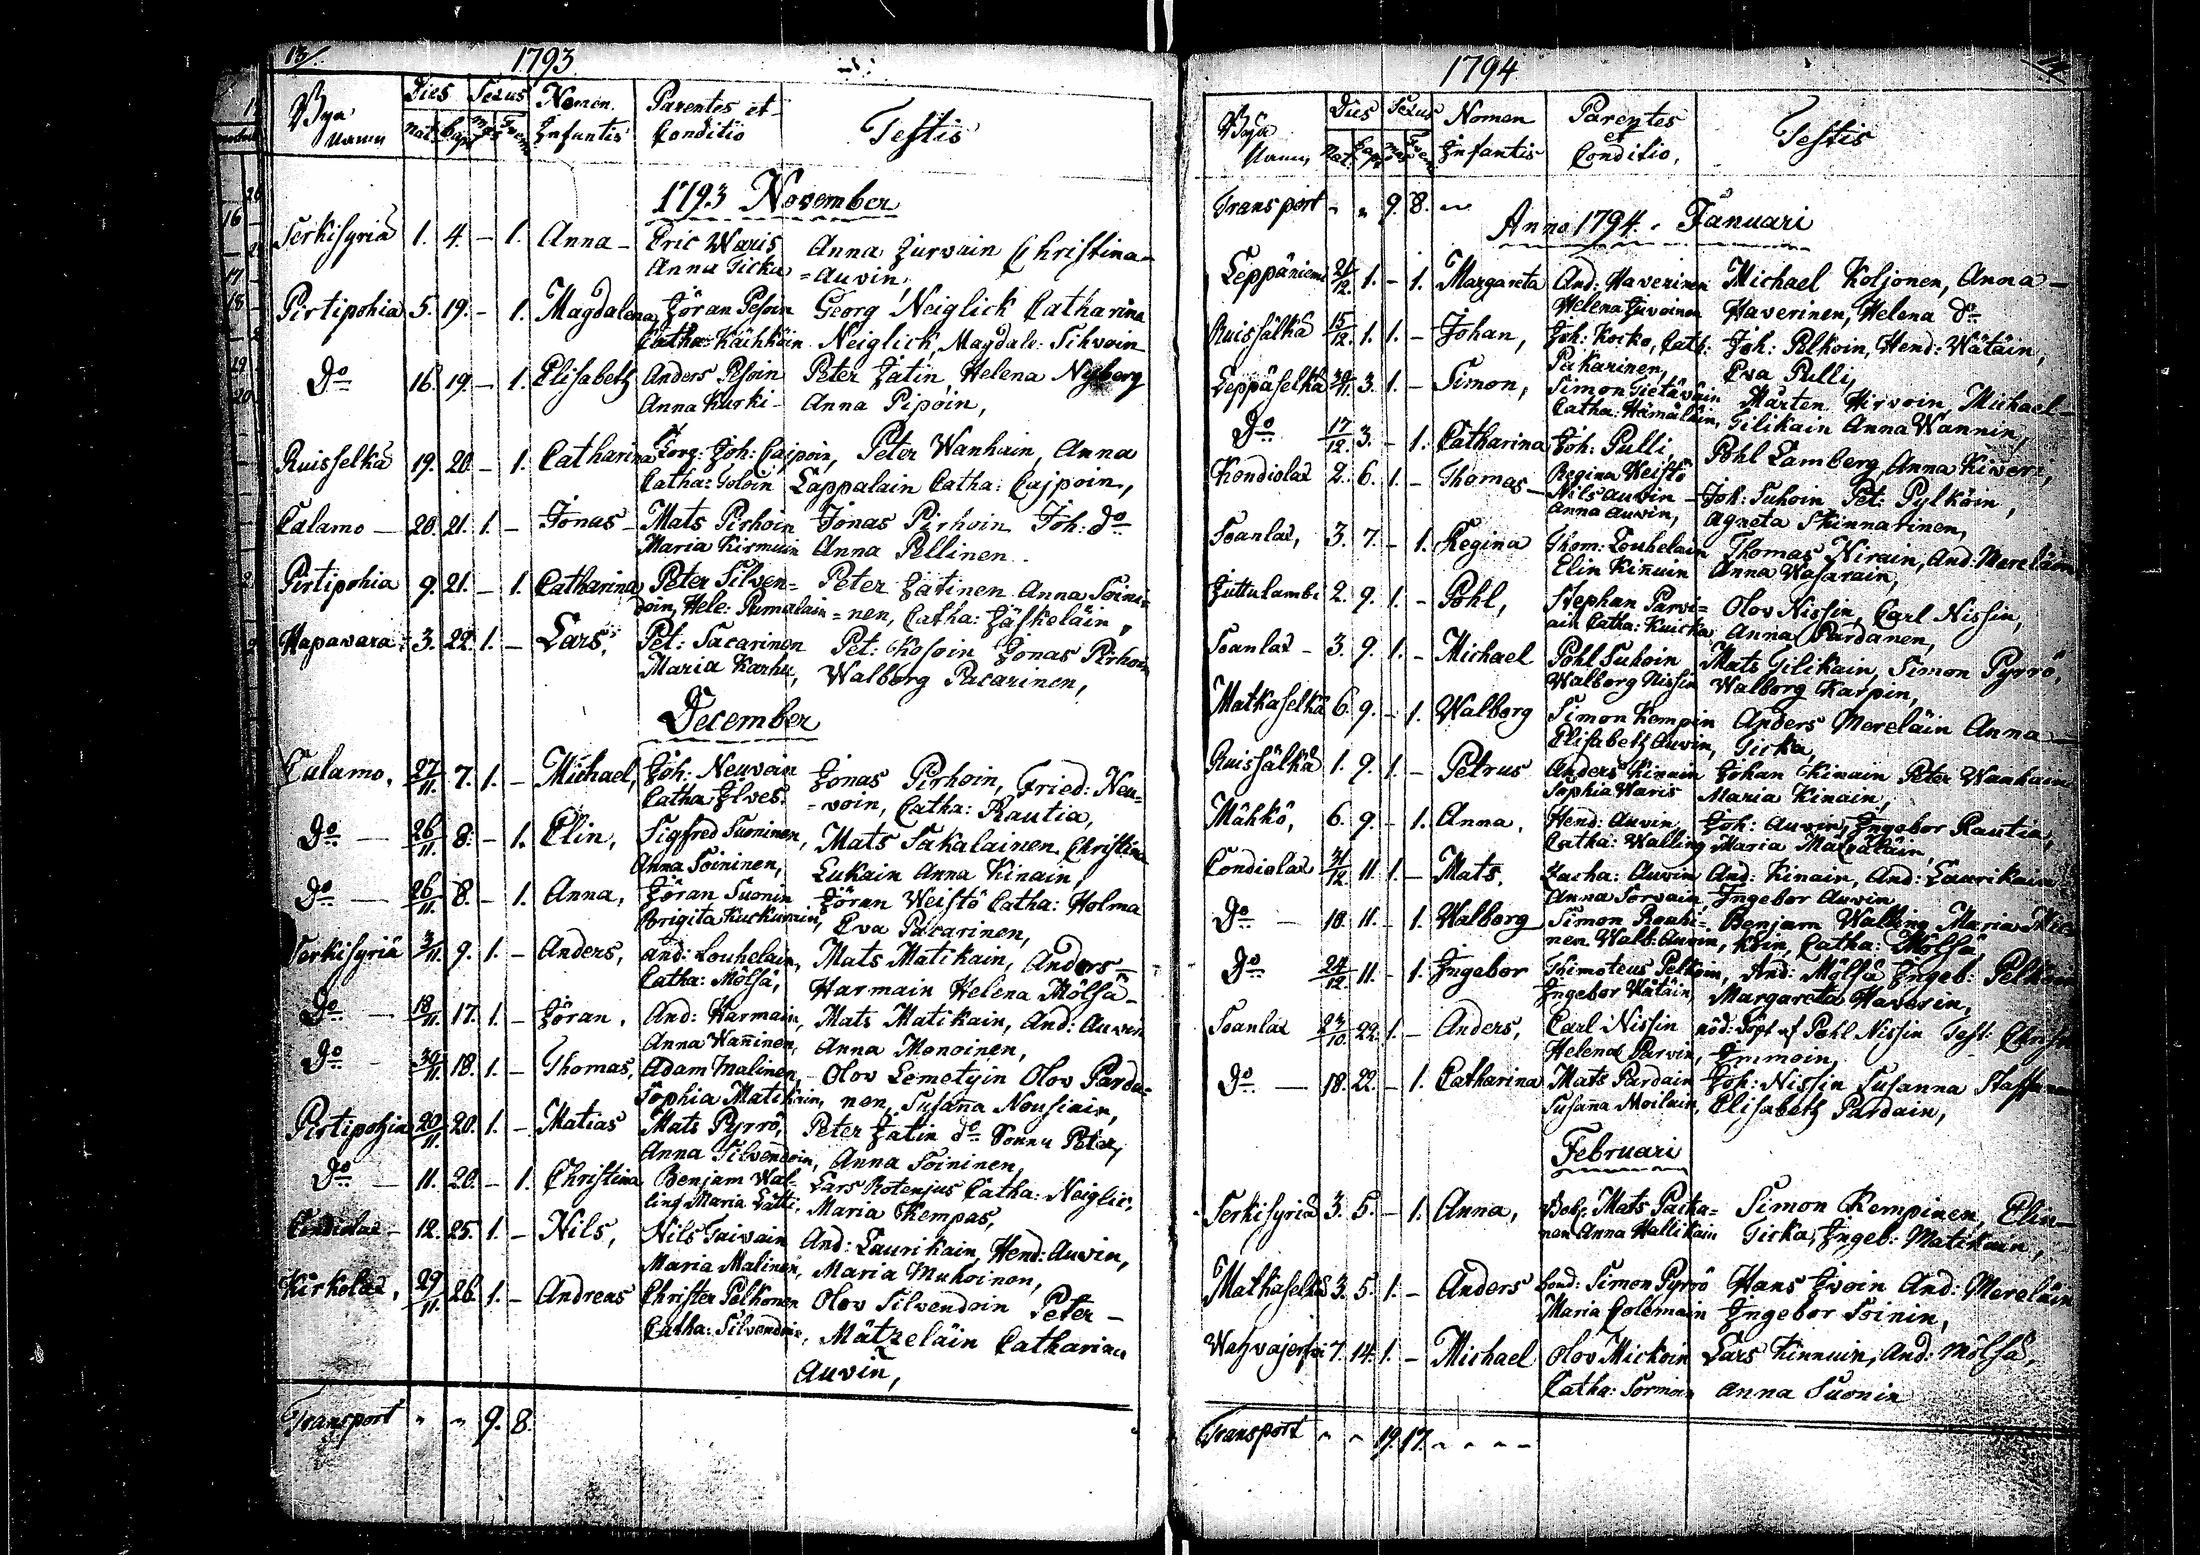 13/. 1793
Bya Namn Dies Nat: Bapt Sexus Nomen Infantis Parentes et Conditio Testis
1793 November
Serkisyriä 1. 4. – 1. Anna – Eric Waris Anna Zurvain Christina
Anna Ticka = Auvin,
Pirtipohia 5. 19. – 1. Magdalena Jöran Pesoin Georg Neiglick Catharina
Catha: Kaihkoin Neiglick, Magdale: Sihvoin
Do 16. 19. – 1. Elisabeth Anders Pesoin Peter Jatin, Helena Nyborg
Anna Kurki – Anna Pipoin,
Ruisselkä 19. 20. – 1. Catharina Joh: Caipoin, Peter Wanhain, Anna
Catha: Toloin Lappalain Catha: Cajpoin,
Calamo – 20. 21. 1. – Jonas – Mats Pirhoin Jonas Pirhoin Joh: Do
Maria Kirmuin Anna Pellinen
Pirtipohia 9. 21. – 1. Catharina Peter Silven= Peter Jatinen Anna Soini=
doin, Hele: Pumalain =nen, Catha: Jäskeläin,
Hapawara 3. 22. 1. – Lars, Pet: Pacarinen Pet: Kosoin Jonas Pirhoin
Maria Karhu, Walborg Pacarinen,
December
Calamo, 27/11. 7. 1. – Michael, Joh: Neuvoin Jonas Pirhoin, Fried: Neu=
Catha: Ilves. =voin, Catha: Rautia,
Do – 26/11. 8. – 1. Elin, Sigfred Suoninen, Mats Sakalainen Christina
Anna Soininen, Lukain Anna Kinain,
Do – 26/11. 8. – 1. Anna, Jöran Suonin Jöran Weistö Catha: Holma
Brigita Kuckurain, Eva Pacarinen,
Serkisyriä 3/11. 9. 1. – Anders, And: Louhelain, Mats Matikain, Anders –
Catha: Mölsä, Harmain Helena Mölsä –
Do – 18/11. 17. 1. – Jöran. And: Harmain, Mats Matikain, And: Auvin
Anna Wañinen, Anna Monoinen,
Do – 30/11. 18. 1. – Thomas, Adam Malinen, Olov Lemetyin Olov Parda=
Sophia Matikain, nen, Susaña Nousiain,
Pirtipohia 20/11. 20. 1. – Matias Mats Pyrrö, Peter Jatin do Sonnu Peter,
Anna Silvendoin, Anna Soininen,
Do – 11. 20. – 1. Christina Benjam Wal= Lars Rotenjus Catha: Neiglic,
ling Maria Lätti, Maria Kempas,
Condiolax – 12. 25. 1. – Nils, Nils Taivain And: Laurikain, Hend: Auvin,
Maria Malinen, Maria Muhoinen,
Kirkolax, 29/11. 26. 1. – Andreas Christer Pelkonen Olov Silvendoin Peter –
Catha: Silvendoin, Mätzeläin Catharina
Auvin,
Transport " " 9. 8.
14
1794
Bya Namn, Dies Nat. Bapt Sexus Nomen Infantis Parentes et Conditio, Testis
Transport " " 9. 8. "
Anno 1794. Januari
Leppäniemi 21/12. 1. – 1. Margareta And: Haverinen Michael Koljonen, Anna –
Helena Juvoinen Haverinen, Helena Do
Ruissälkä 15/12. 1. 1. – Johan, Joh: Kocko, Cath: Joh: Pelkoin, Hend: Wätäin,
Pakarinen, Eva Pulli,
Leppäselkä 30/11. 3. 1. – Simon, Simon Tietäväin Mårten Hirvoin, Michael –
Catha: Hämäläin, Tilikain Anna Wannin,
Do 17/12. 3. – 1. Catharina Joh: Pulli, Pohl Lamberg, Anna Kiveri,
Regina Weistö
Kondiolax 2. 6. 1. – Thomas – Nils Auvin – Joh: Tuhoin Pet: Pylköin,
Anna Auvin, Agneta Skinnarinen,
Soanlax, 3. 7. – 1. Regina Thom: Louhelain Thomas Nirain, And: Mereläin
Elin Kiñuin Anna Wasarain,
Juttulambi 2. 9. 1. – Pohl, Stephan Parvi= Olov Nissin, Carl Nissin,
ain Catha: Kuicka, Anna Pardanen,
Soanlax – 3. 9. 1. – Michael Pohl Tuhoin Mats Tilikain, Simon Pyrrö,
Walborg Nissin Walborg Karpin,
Matkaselkä 6. 9. – 1. Walborg Simon Kempin Anders Mereläin Anna –
Elisabeth Auvin, Ticka,
Ruissälkä 1. 9. 1. – Petrus Anders Kinain Johan Kinain Peter Wanhain
Sophia Waris Maria Kinain,
Mähkö, 6. 9. – 1. Anna, Hend: Auvin Joh: Auvin, Ingebor Rautia,
Catha: Walling Maria
Condiolax 31/12. 11. 1. – Mats, Zacha: Auvin And: Kinain, And: Laurikain
Anna Sorvain, Ingebor Auvin
Do – 10. 11. – 1. Walborg Simon Benjam Walling Maria
nen Walb: Auvin, Catha: Mölsä
Do 24/12. 11. – 1. Ingebor Thimoteus Pelkoin, And: Mölsä, Ingeb: Pelkoin
Ingebor Wätäin, Margareta Haverin,
Soanlax 23/10. 22. 1. – Anders, Carl Nissin nöd: döpt af Pohl Nissin Test:
Helena Parvin, Immoin,
Do – 18. 22. – 1. Catharina Mats Pardain Joh: Nissin Susanna
Susaña Moilain, Elisabeth Pardain,
Februari
Serkisyriä 3. 5. – 1. Anna, Mats Packa= Simon Kempinen, Elin –
nen Anna Hallikain Ticka, Ingeb: Matikain,
Matkaselkä 3. 5. 1. – Anders Simon Pyrrö Hans Ivoin And: Mereläin
Maria Colemain Ingebor Soinin,
7. 14. 1. – Michael Olov Mickoin Lars Kinnuin, And: Mölsä,
Catha: Sormoin Anna Suonin
Transport " " 19. 17. " " " "